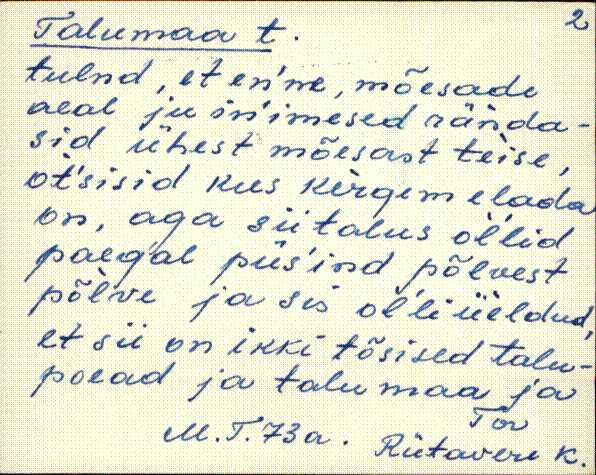 Talumaa t.
2
tulnd, et en'ne, mõesade
aeal ju in'imesed rända-
sid ühest mõesast teise,
ot'sisid kus kergem elada
on, aga sii talus ol'lid
paegal püs'ind põlvest
põlve ja sis ol'li üeldud,
et sii on ikki tõsised talu-
poead ja talu maa ja
Tor
M.T. 73a. Rütavere k.